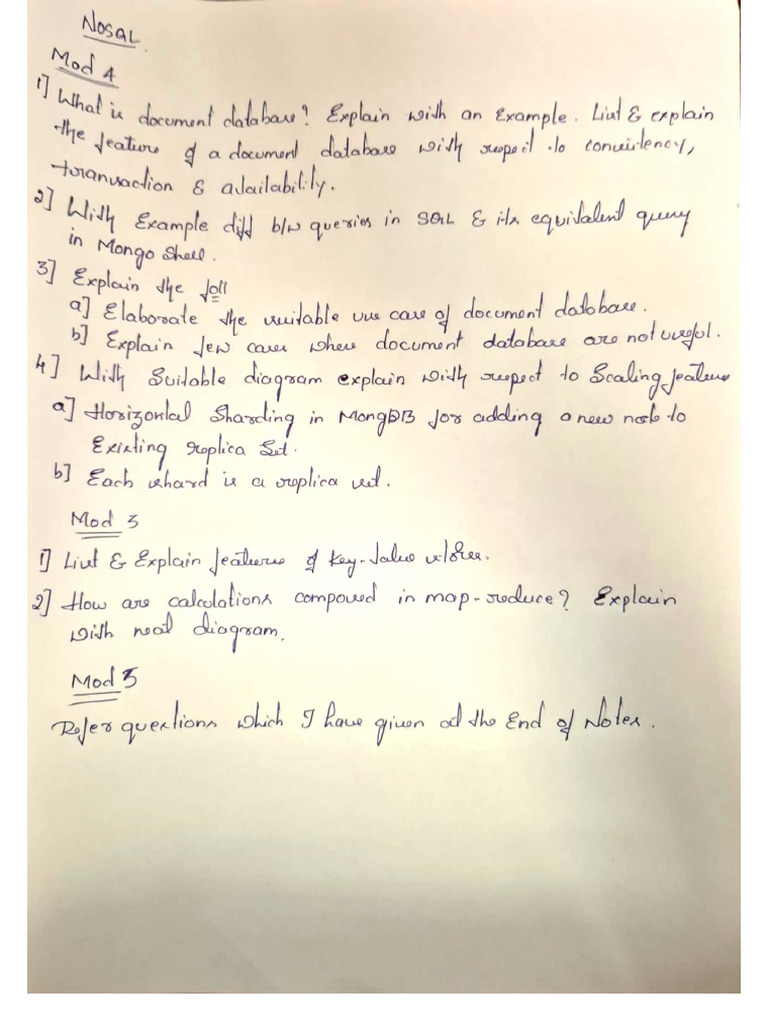 NOSQL
Mod 4
1] What is document database? Explain with an Example. List & explain
the feature of a document database with respect to consistency,
transaction & availability.
2] With Example diff b/w queries in SQL & its equivalent query
in Mongo Shell.
3] Explain the foll
a] Elaborate the suitable use case of document database.
b] Explain few cases where document database are not useful.
4] With Suitable diagram explain with respect to Scaling feature
a] Horizontal Sharding in MongDB for adding a new node to
Existing replica Set.
b] Each shard is a replica set.
Mod 3
1] List & Explain features of Key-Value stores.
2] How are calculations composed in map-reduce? Explain
with neat diagram.
Mod 5
Refer questions which I have given at the End of Notes.